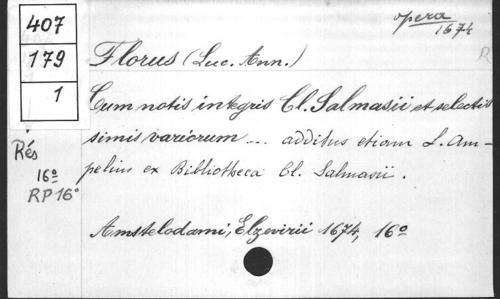 407
179
1
opera
1674
R
Florus (Luc. Ann.)
Cum notis integris Cl. Salmasii et selectis
simis variorum ... additus etiam L. Am-
pelius ex Bibliotheca Cl. Salmasii.
Rés
16º
RP 16º
Amstelodami, Elzevirii 1674, 16º